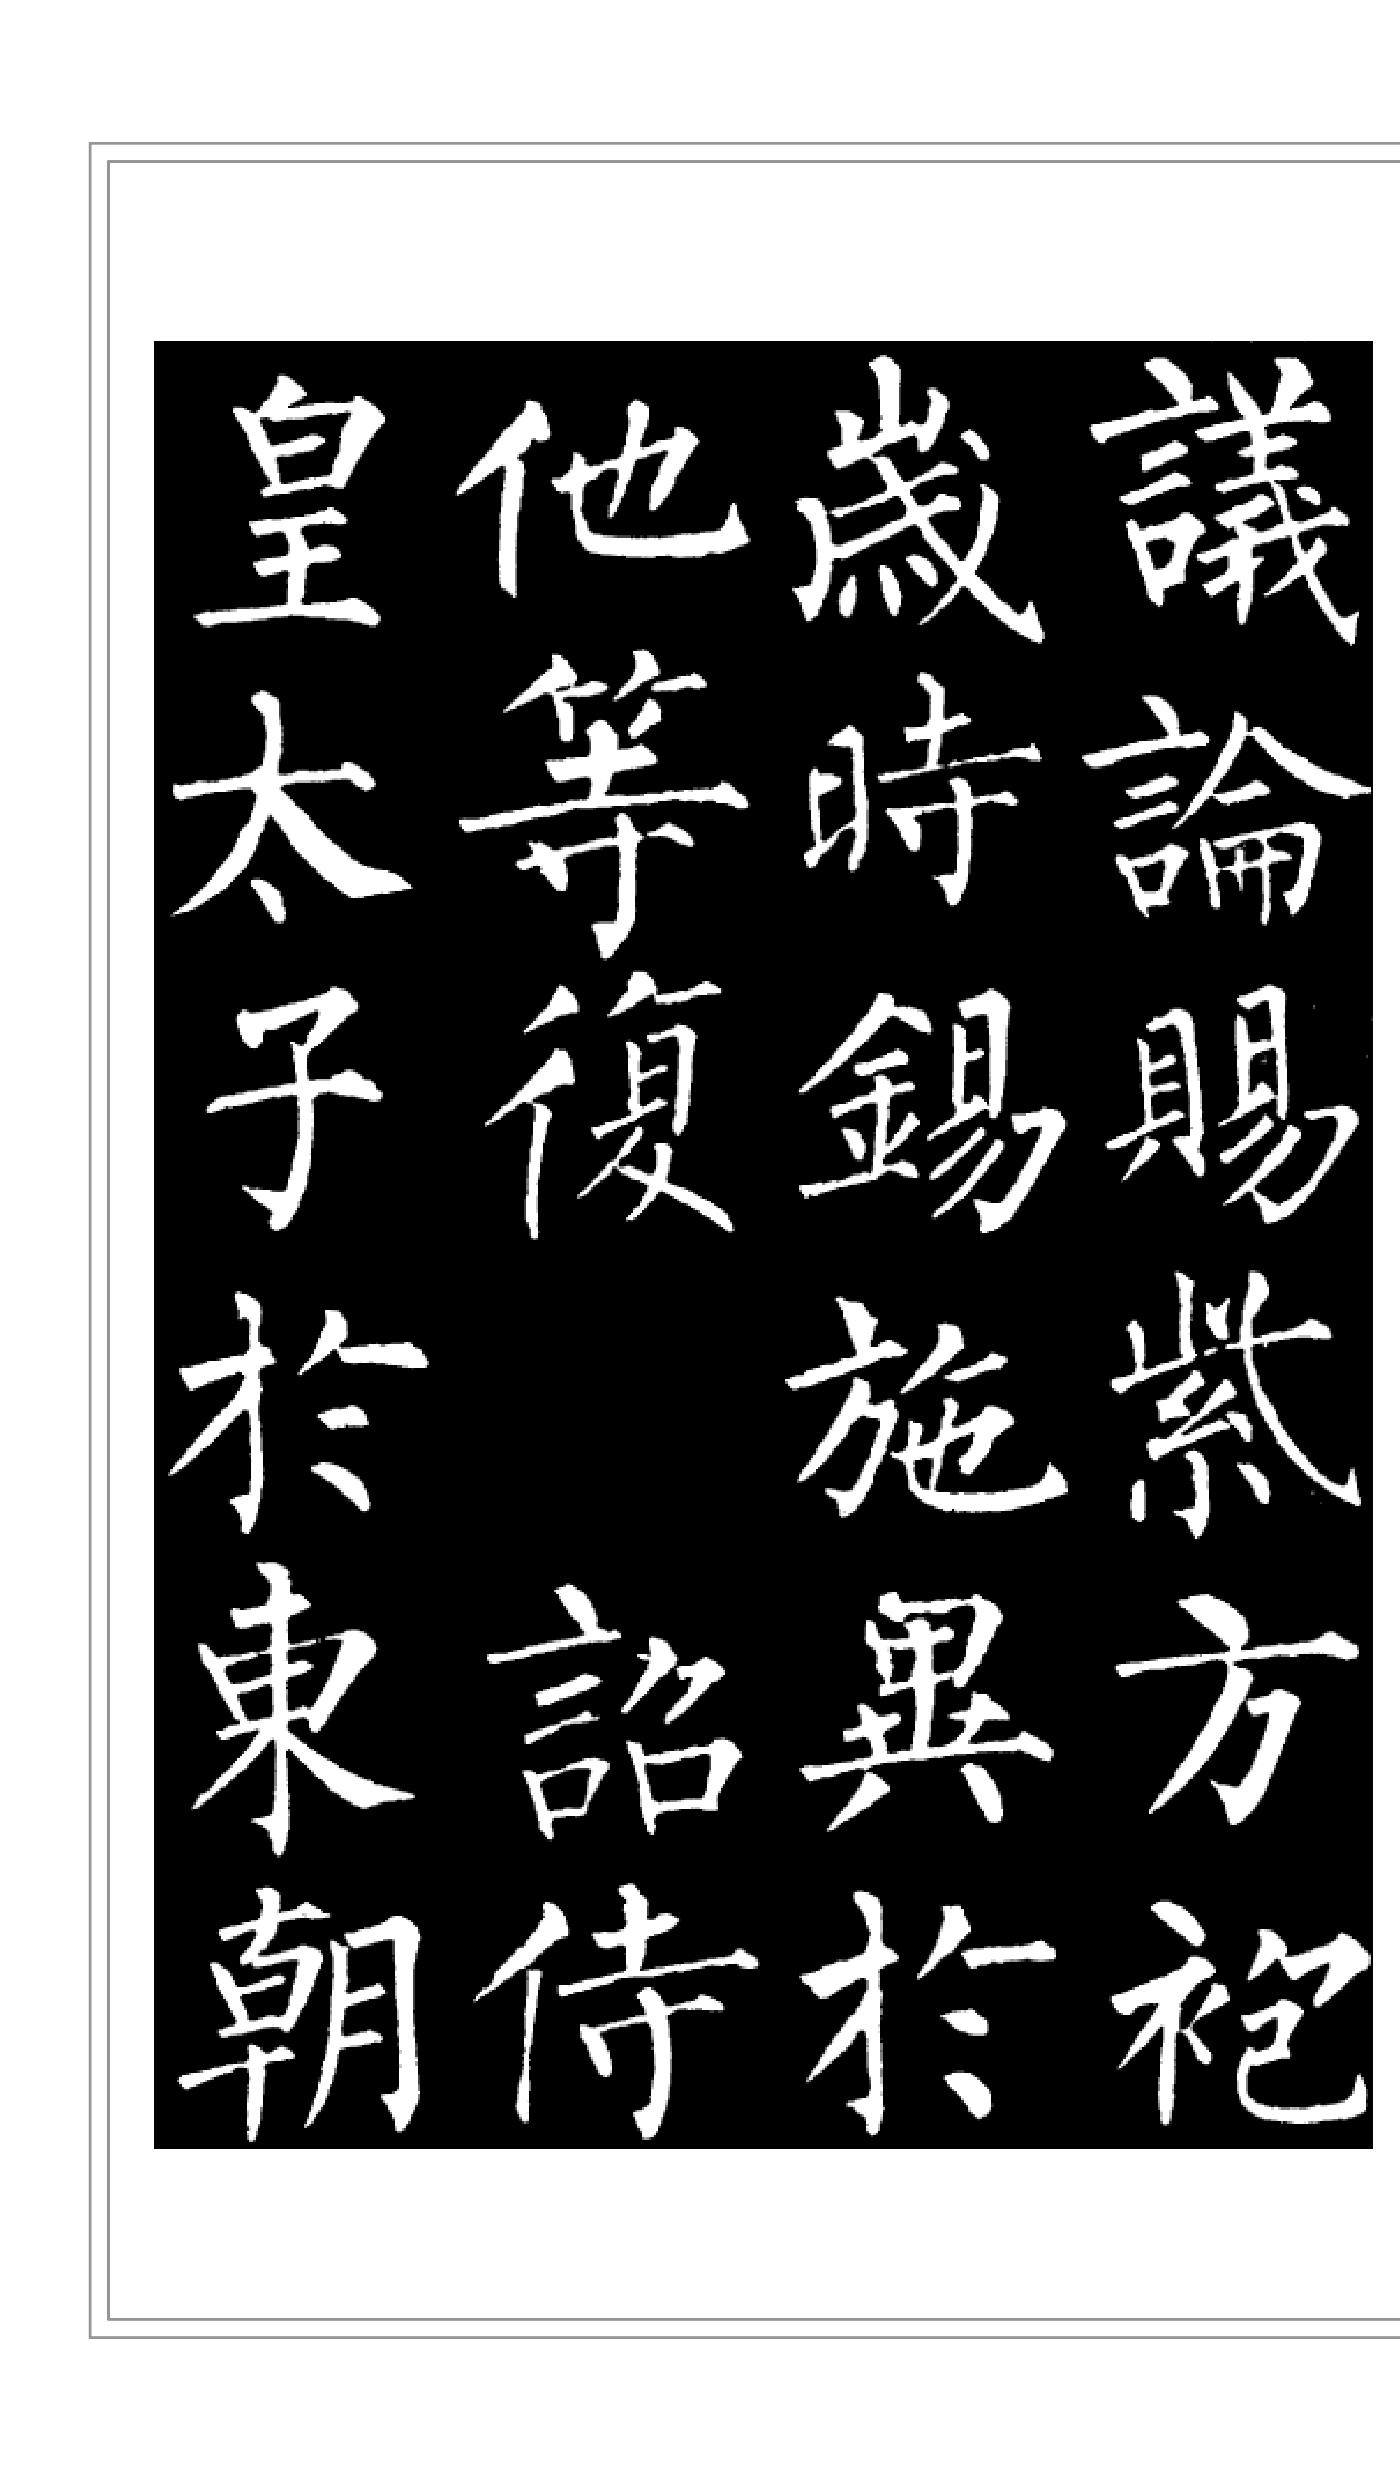 議論賜紫方袍
歲時錫施異於
他等復詔侍
皇太子於東朝